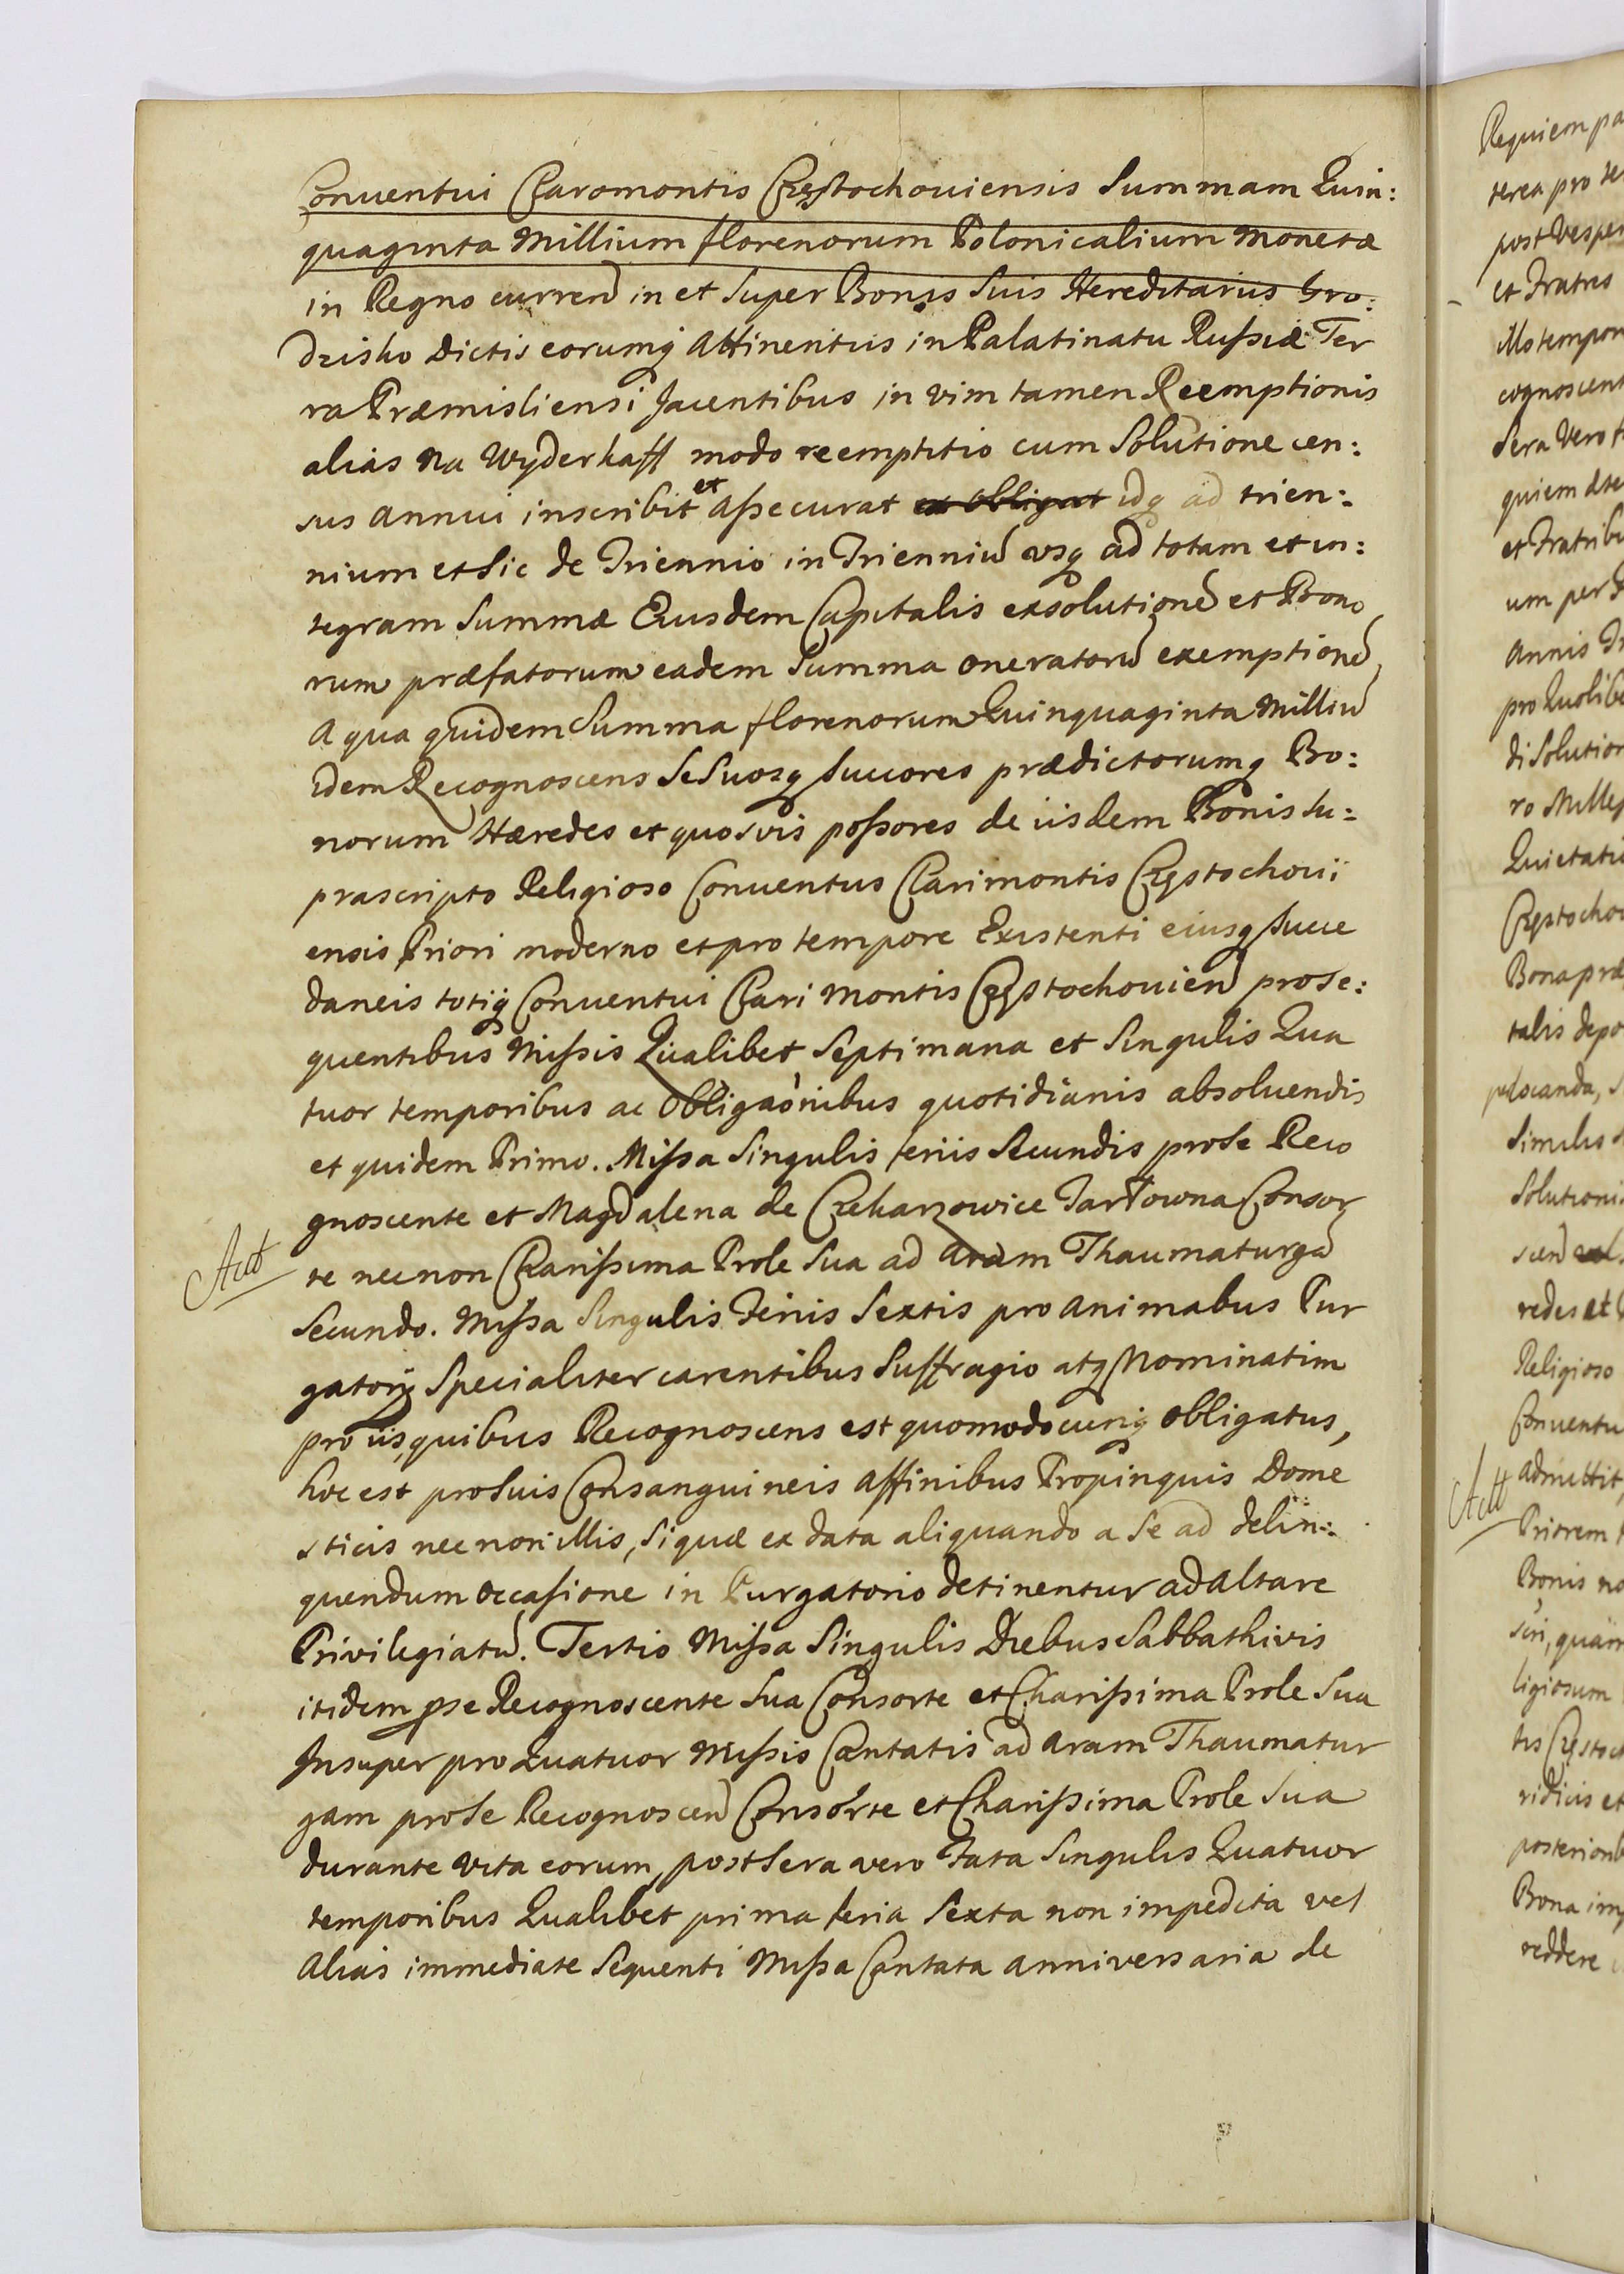 Conuentui Claromontis Częstochouiensis Summam Quin:
quaginta Millium florenorum Polonicalium Monetæ
in Regno curren in et Super Bonis Suis Hereditariis Gro:
dzisko Dictis eorumq Attinentiis in Palatinatu Rußiæ Ter
ra Præmisliensi Jacentibus in vim tamen Reemptionis
alias Na Wyderkaff modo reemptitio cum Solutione cen:
sus annui inscribit et Aßecurat et obligat idq ad trien:
nium et Sic de Triennio in Trienniu usq ad totam et in:
tegram Summæ Eiusdem Capitalis exsolutione et Bono
rum præfatorum eadem Summa oneratoru exemptione,
A qua quidem Summa florenorum Quinquaginta Milliu
idem Recognoscens Se Suosq Succores prædictorumq Bo:
norum Hæredes et quosvis poßores de iisdem Bonis Su:
prascripto Religioso Conuentus Clarimontis Częstochoui
ensis Priori moderno et pro tempore Existenti eiusq Succe
daneis totiq Conuentui Clari Montis Częstochouien pro se:
quentibus Mißis Qualibet Septimana et Singulis Qua
tuor temporibus ac Obligaonibus quotidianis absoluendis
et quidem Primo. Mißa Singulis feriis Secundis pro Se Reco
gnoscente et Magdalena de Czekarzowice Tarłowna Consor
te necnon Clarißima Prole Sua ad Aram Thaumaturga
Secundo. Mißa Singulis Feriis Sextis pro animabus Pur
gatorij Specialiter carentibus Suffragio atq Nominatim
pro iis, quibus Recognoscens est quomodocunq obligatus,
hoc est pro Suis Consanguineis Affinibus Propinquis Dome
sticis necnon illis, Si quæ ex data aliquando a Se ad delin:
quendum occasione in Purgatorio detinentur ad Altare
Privilegiatu. Tertio Mißa Singulis Diebus Sabbathivis
itidem pse Recognoscente Sua Consorte et Charißima Prole Sua
Insuper pro Quatuor Mißis Cantatis ad Aram Thaumatur
gam pro Se Recognoscen Consorte et Charißima Prole Sua
durante vita eorum, post Sera vero Fata Singulis Quatuor
temporibus Qualibet prima feria Sexta non impedita vel
Alias immediate Sequenti Mißa Cantata anniversaria de
Actt
Requiem pa
terea pro
post Vesper
et Fratres
illo tempor
cognoscent
Sera Vero
quiem
et Fratribu
um per
Annis
pro Quolibe
di Solution
ro Mille
Quietati
Częstochou
Bona præ
talis depo
locanda,
Similis
Solutioni
scen
redes et
Religioso
Conuentu
Actt admittit,
Priorem
Bonis no
ligiosum
tis Częstoch
ridicis et
posteriorib
Bona imp
reddere